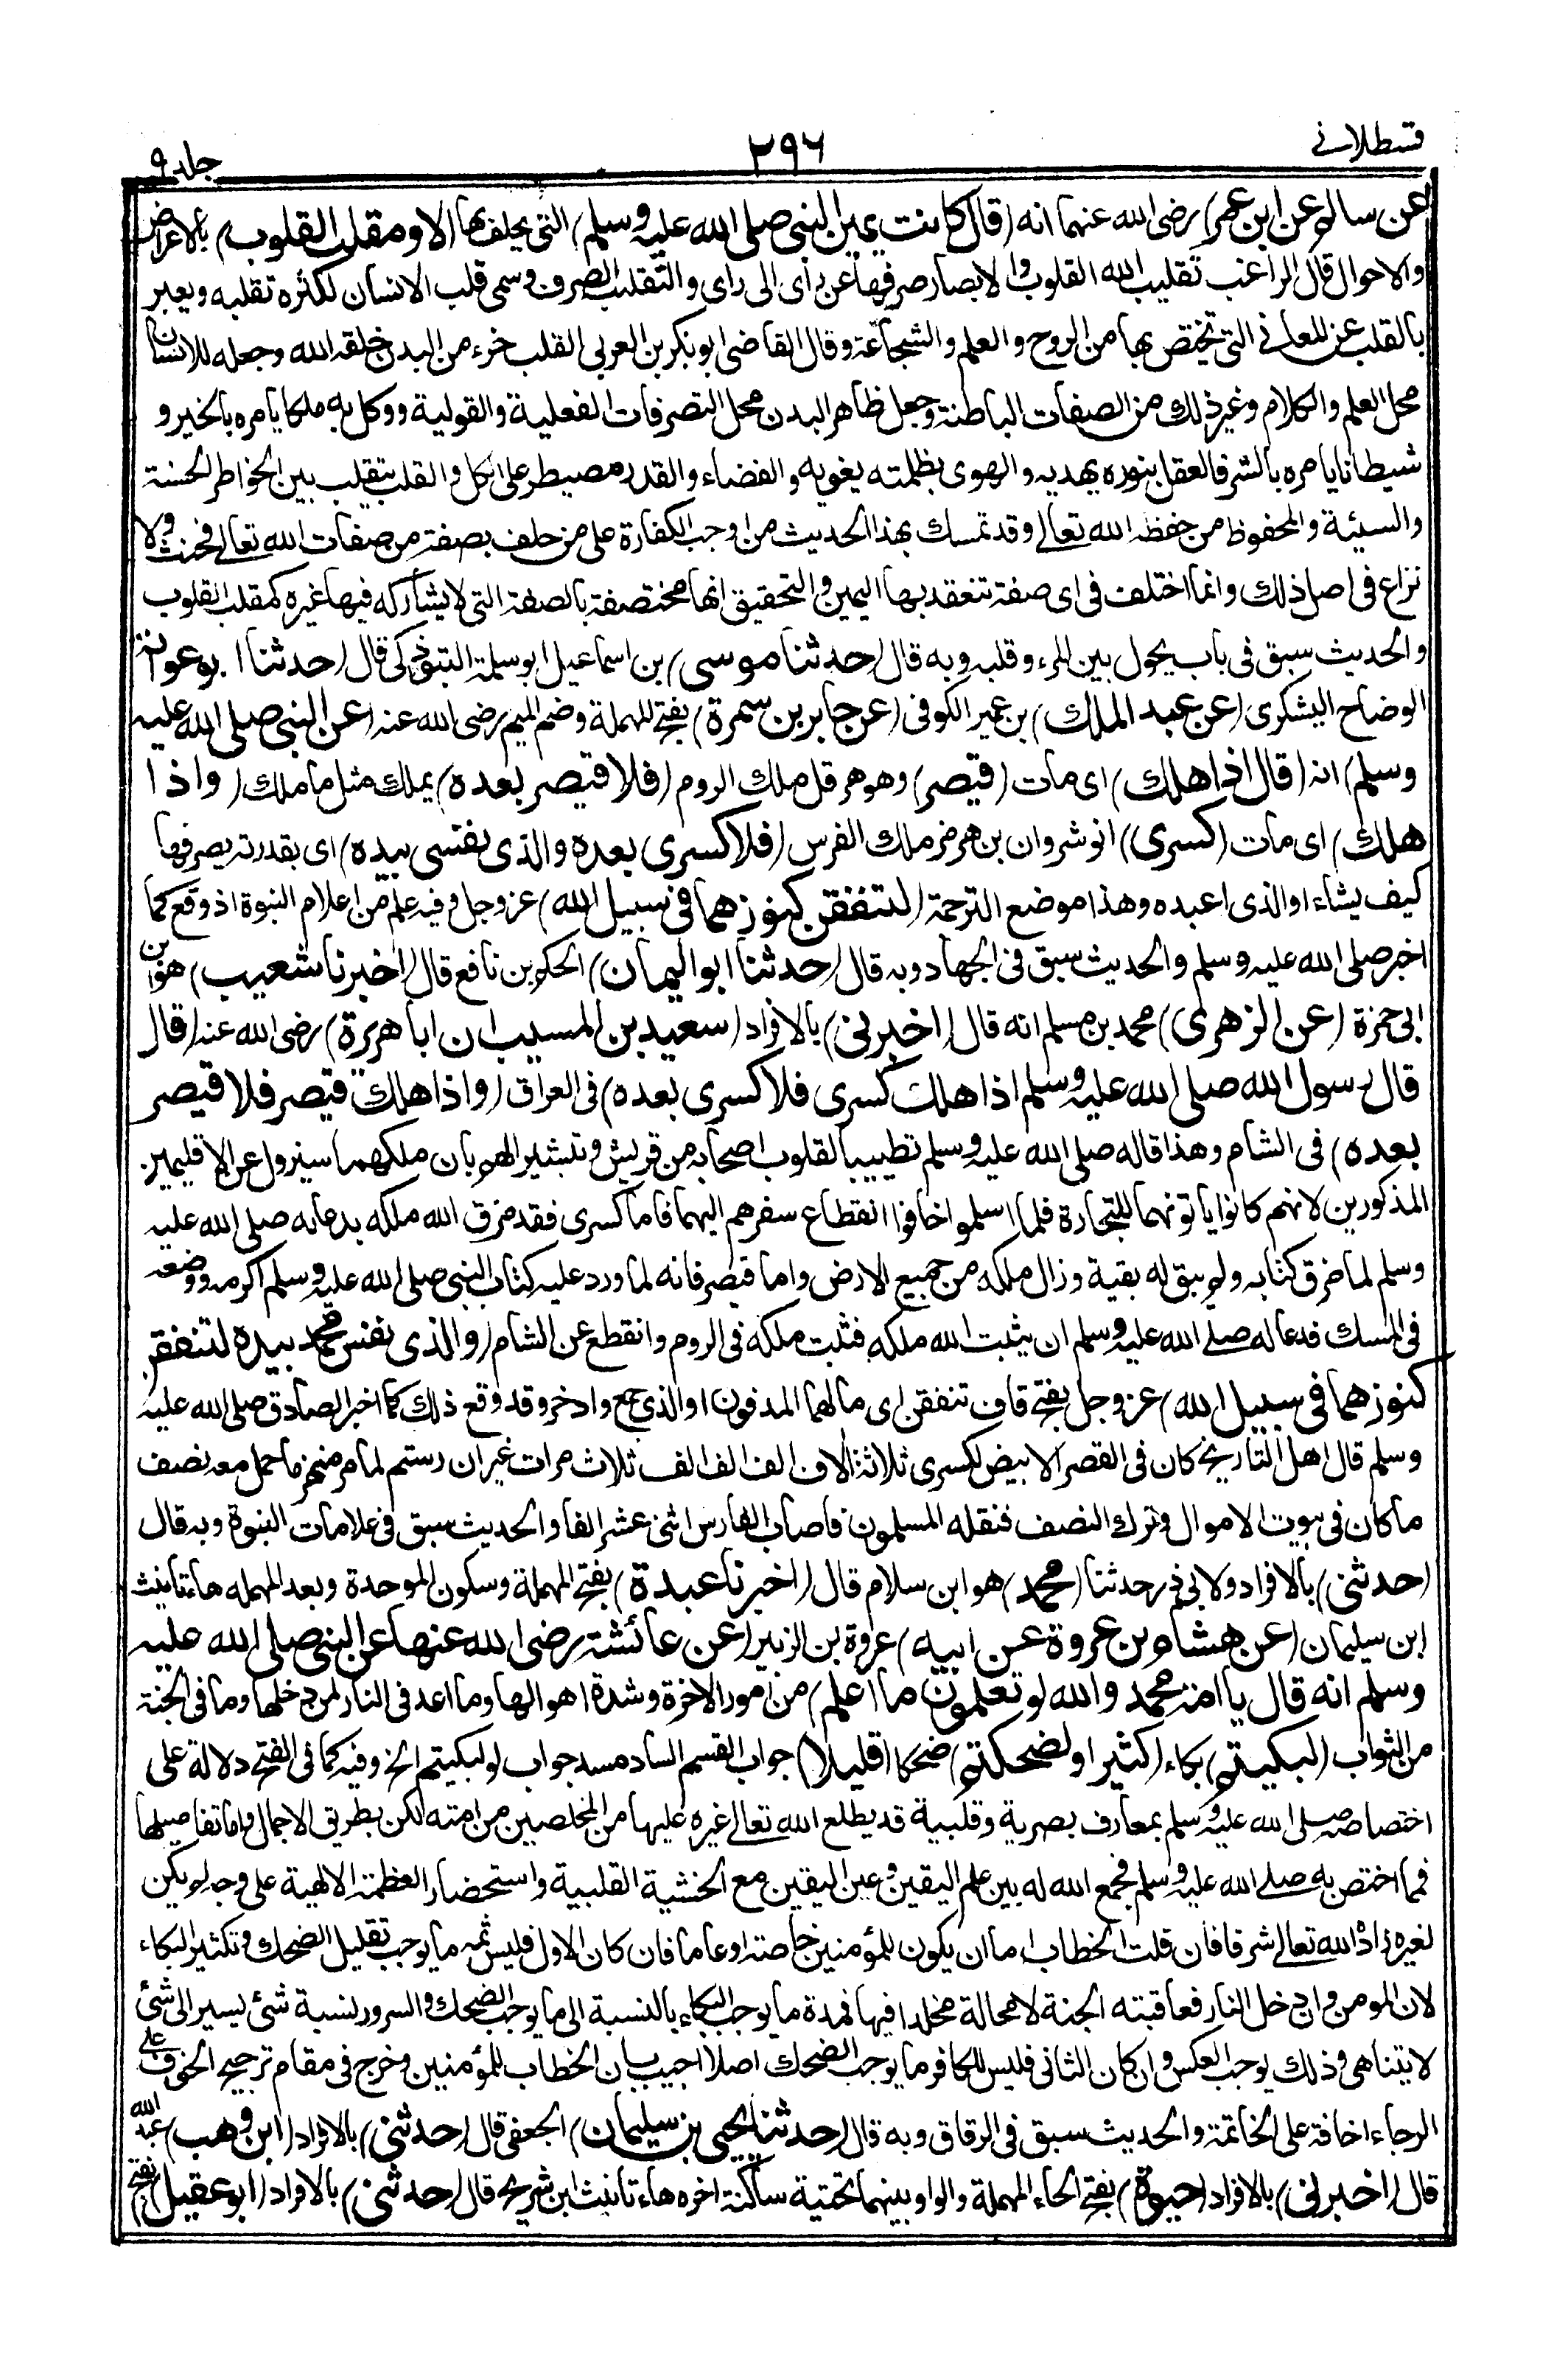 قسطلانے
٢٩٦
جلد ٩
عن سالم عن ابن عمر) رضى الله عنهما انه (قال كانت يمين النبى صلى الله عليه وسلم) التى يحلف بها (لا ومقلب القلوب) بالاعراض
والاحوال قال الراغب تقليب الله القلوب والابصار صرفها عن راى الى راى والتقلب الصرف وسمى قلب الانسان لكثره تقلبه ويعبر
بالقلب عن المعانى التى تختص بها من الروح والعلم والشجاعة وقال القاضى ابو بكر بن العربى القلب جزء من البدن خلقه الله وجعله للانسان
محل العلم والكلام وغير ذلك من الصفات الباطنة وجعل ظاهر البدن محل التصرفات الفعلية والقولية ووكل به ملكا يامره بالخير و
شيطانا يامره بالشر فالعقل بنوره يهديه والهوى بظلمته يغويه والقضاء والقدر مصيطر على الكل والقلب يتقلب بين الخواطر الحسنة
والسيئة والمحفوظ من حفظه الله تعالى وقد تمسك بهذا الحديث من اوجب الكفارة على من حلف بصفة من صفات الله تعالى فحنث ولا
نزاع فى اصل ذلك وانما اختلف فى اى صفة تنعقد بها اليمين والتحقيق انها مختصة بالصفة التى لا يشاركه فيها غيره كمقلب القلوب
والحديث سبق فى باب يحول بين المرء وقلبه وبه قال (حدثنا موسى) بن اسماعيل ابو سلمة التبوذكى قال (حدثنا ابو عوانة
الوضاح اليشكرى (عن عبد الملك) بن عمير الكوفى (عن جابر بن سمرة) بفتح المهملة وضم الميم رضى الله عنه (عن النبى صلى الله عليه
وسلم) انه (قال اذا هلك) اى مات (قيصر) وهو هرقل ملك الروم (فلا قيصر بعده) يملك مثل ما ملك (واذا
هلك) اى مات (كسرى) انوشروان بن هرمز ملك الفرس (فلا كسرى بعده والذى نفسى بيده) اى بقدرته يصرفها
كيف يشاء او الذى اعبده وهذا موضع الترجمة (لتنفقن كنوزهما فى سبيل الله) عز وجل وفيه علم من اعلام النبوة اذ وقع كما
اخبر صلى الله عليه وسلم والحديث سبق فى الجهاد وبه قال (حدثنا ابو اليمان) الحكم بن نافع قال (اخبرنا شعيب) هو ابن
ابى حمزة (عن الزهرى) محمد بن مسلم انه قال (اخبرنى) بالافراد (سعيد بن المسيب ان ابا هريرة) رضى الله عنه (قال
قال رسول الله صلى الله عليه وسلم اذا هلك كسرى فلا كسرى بعده) فى العراق (واذا هلك قيصر فلا قيصر
بعده) فى الشام وهذا قاله صلى الله عليه وسلم تطييبا لقلوب اصحابه من قريش وتبشيرا لهم بان ملكهما سيزول عن الاقليمين
المذكورين لانهم كانوا ياتونهما للتجارة فلما اسلموا خافوا انقطاع سفرهم اليهما فاما كسرى فقد مزق الله ملكه بدعائه صلى الله عليه
وسلم لما مزق كتابه ولم يبق له بقية وزال ملكه من جميع الارض واما قيصر فانه لما ورد عليه كتاب النبى صلى الله عليه وسلم اكرمه ووضعه
فى المسك فدعا له صلى الله عليه وسلم ان يثبت الله ملكه فثبت ملكه فى الروم وانقطع عن الشام (والذى نفس محمد بيده لتنفقن
كنوزهما فى سبيل الله) عز وجل بفتح قاف تنفقن اى مالهما المدفون او الذى جمع وادخر وقد وقع ذلك كما اخبر الصادق صلى الله عليه
وسلم قال اهل التاريخ كان فى القصر الابيض لكسرى ثلاثة آلاف الف الف الف ثلاث مرات غير ان رستم لما مر منهزما حمل معه نصف
ما كان فى بيوت الاموال وترك النصف فنقله المسلمون فاصاب الفارس اثنى عشر الفا والحديث سبق فى علامات النبوة وبه قال
(حدثنى) بالافراد ولابى ذر حدثنا (محمد) هو ابن سلام قال (اخبرنا عبدة) بفتح المهملة وسكون الموحدة وبعد المهمله هاء تانيث
ابن سليمان (عن هشام بن عروة عن ابيه) عروة بن الزبير (عن عائشة رضى الله عنها عن النبى صلى الله عليه
وسلم انه قال يا امة محمد والله لو تعلمون ما اعلم) من امور الاخرة وشدة اهوالها وما اعد فى النار لمن دخلها وما فى الجنة
من الثواب (لبكيتم) بكاء (كثيرا ولضحكتم) ضحكا (قليلا) جواب القسم الساد مسد جواب لو لبكيتم الخ وفيه كما فى الفتح دلالة على
اختصاصه صلى الله عليه وسلم بمعارف بصرية وقلبية قد يطلع الله تعالى غيره عليها من المخلصين من امته لكن بطريق الاجمال واما تفاصيلها
فمما اختص به صلى الله عليه وسلم فجمع الله له بين علم اليقين وعين اليقين مع الخشية القلبية واستحضار العظمة الالهية على وجه لم يكن
لغيره زاده الله تعالى شرفا فان قلت الخطاب اما ان يكون للمؤمنين خاصة او عاما فان كان الاول فليس ثمه ما يوجب تقليل الضحك وتكثير البكاء
لان المومن وان دخل النار فعاقبته الجنة لا محالة مخلدا فيها فمدة ما يوجب البكاء بالنسبة الى ما يوجب الضحك والسرور نسبة شئ يسير الى شئ
لا يتناهى وذلك يوجب العكس وان كان الثانى فليس للكافر ما يوجب الضحك اصلا اجيب بان الخطاب للمؤمنين وخرج فى مقام ترجيح الخوف على
الرجاء اخافة على الخاتمة والحديث سبق فى الرقاق وبه قال (حدثنا يحيى بن سليمان) الجعفى قال (حدثنى) بالافراد (ابن وهب) عبد الله
قال (اخبرنى) بالافراد (حيوة) بفتح الحاء المهملة والواو بينهما تحتية ساكنة اخره هاء تانيث ابن شريح قال (حدثنى) بالافراد (ابو عقيل) بفتح